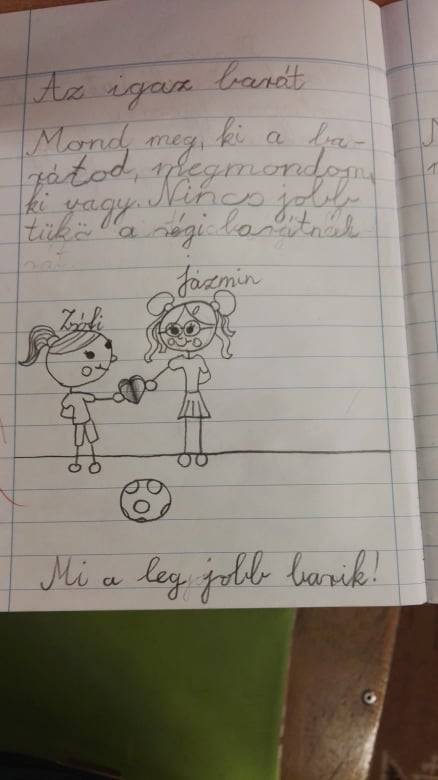 Az igaz barát
Mond meg, ki a ba-
rátod, megmondom,
ki vagy. Nincs jobb
tükö a régi barátnak
Jázmin
Zófi
Mi a leg jobb barik!